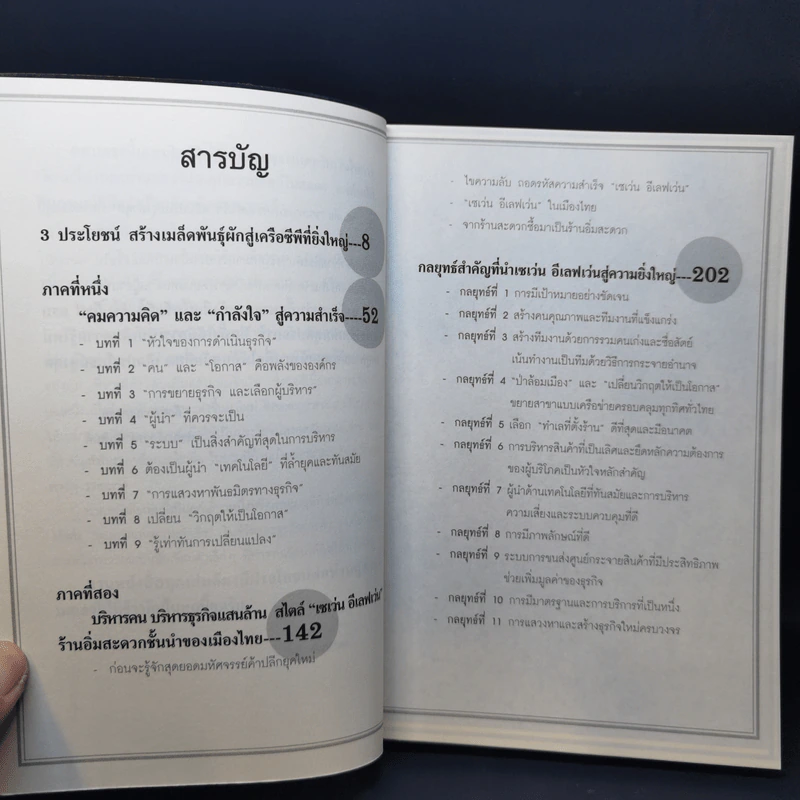 สารบัญ
3 ประโยชน์ สร้างเมล็ดพันธุ์ผักสู่เครือซีพีที่ยิ่งใหญ่---8
ภาคที่หนึ่ง
"คมความคิด" และ "กำลังใจ" สู่ความสำเร็จ----52
- บทที่ 1 "หัวใจของการดำเนินธุรกิจ"
- บทที่ 2 "คน" และ "โอกาส" คือพลังขององค์กร
- บทที่ 3 "การขยายธุรกิจ และเลือกผู้บริหาร"
- บทที่ 4 "ผู้นำ" ที่ควรจะเป็น
- บทที่ 5 "ระบบ" เป็นสิ่งสำคัญที่สุดในการบริหาร
- บทที่ 6 ต้องเป็นผู้นำ "เทคโนโลยี" ที่ล้ำยุคและทันสมัย
- บทที่ 7 "การแสวงหาพันธมิตรทางธุรกิจ"
- บทที่ 8 เปลี่ยน "วิกฤตให้เป็นโอกาส"
- บทที่ 9 "รู้เท่าทันการเปลี่ยนแปลง"
ภาคที่สอง
บริหารคน บริหารธุรกิจแสนล้าน สไตล์ "เซเว่น อีเลฟเว่น"
ร้านอิ่มสะดวกชั้นนำของเมืองไทย---142
- ก่อนจะรู้จักสุดยอดมหัศจรรย์ค้าปลีกยุคใหม่
- ไขความลับ ถอดรหัสความสำเร็จ "เซเว่น อีเลฟเว่น"
- "เซเว่น อีเลฟเว่น" ในเมืองไทย
- จากร้านสะดวกซื้อมาเป็นร้านอิ่มสะดวก
กลยุทธ์สำคัญที่นำเซเว่น อีเลฟเว่นสู่ความยิ่งใหญ่---202
- กลยุทธ์ที่ 1 การมีเป้าหมายอย่างชัดเจน
- กลยุทธ์ที่ 2 สร้างคนคุณภาพและทีมงานที่แข็งแกร่ง
- กลยุทธ์ที่ 3 สร้างทีมงานด้วยการรวมคนเก่งและซื่อสัตย์
เน้นทำงานเป็นทีมด้วยวิธีการกระจายอำนาจ
- กลยุทธ์ที่ 4 "ป่าล้อมเมือง" และ "เปลี่ยนวิกฤตให้เป็นโอกาส"
ขยายสาขาแบบเครือข่ายครอบคลุมทุกทิศทั่วไทย
- กลยุทธ์ที่ 5 เลือก "ทำเลที่ตั้งร้าน" ดีที่สุดและมีอนาคต
- กลยุทธ์ที่ 6 การบริหารสินค้าที่เป็นเลิศและยึดหลักความต้องการ
ของผู้บริโภคเป็นหัวใจหลักสำคัญ
- กลยุทธ์ที่ 7 ผู้นำด้านเทคโนโลยีที่ทันสมัยและการบริหาร
ความเสี่ยงและระบบควบคุมที่ดี
- กลยุทธ์ที่ 8 การมีภาพลักษณ์ที่ดี
- กลยุทธ์ที่ 9 ระบบการขนส่งศูนย์กระจายสินค้าที่มีประสิทธิภาพ
ช่วยเพิ่มมูลค่าของธุรกิจ
- กลยุทธ์ที่ 10 การมีมาตรฐานและการบริการที่เป็นหนึ่ง
- กลยุทธ์ที่ 11 การแสวงหาและสร้างธุรกิจใหม่ครบวงจร